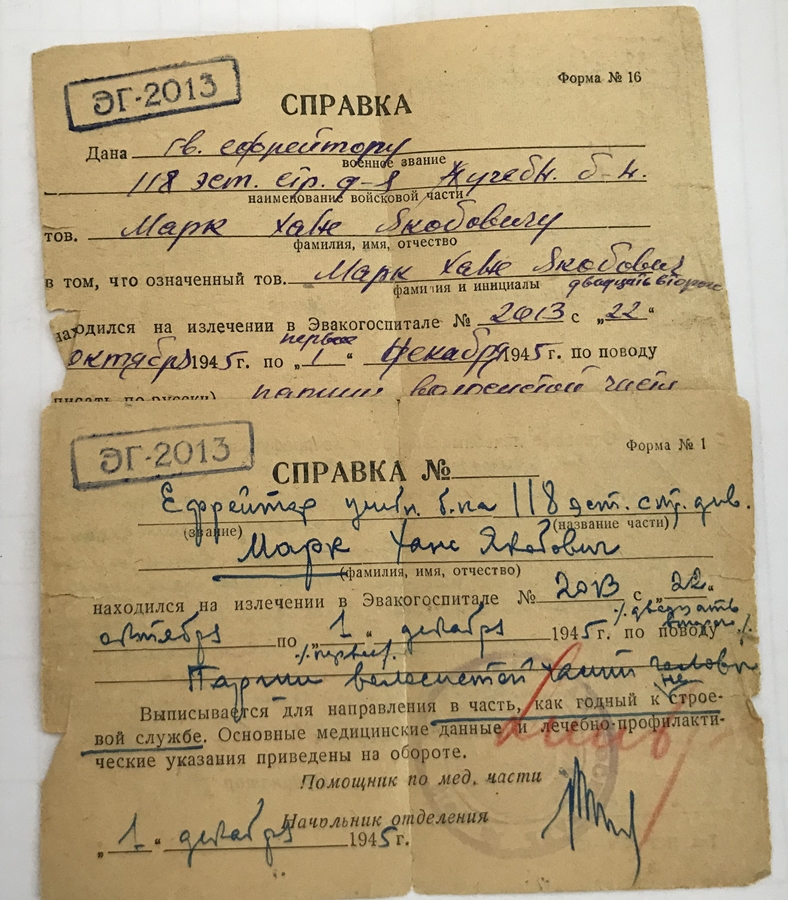 ЭГ-2013
Форма № 16
СПРАВКА
Дана гв. ефрейтору
военное звание
118 эст. стр. д-я учебн. б-н.
наименование войсковой части
тов. Марк Ханс Якобовичу
фамилия, имя, отчество
в том, что означенный тов. Марк Ханс Якобович
фамилия и инициалы двадцать второго
находился на излечении в Эвакогоспитале № 2013 с „22“
первое
октября 1945 г. по „1“ декабря 1945 г. по поводу
писать по русски) волосистой части
ЭГ-2013
Форма № 1
СПРАВКА №
Ефрейтор учебн. б-на 118 эст. стр. див.
(звание) (название части)
Марк Ханс Якобович
(фамилия, имя, отчество)
находился на излечении в Эвакогоспитале № 2013 с „22“
двадцать второго
октября по „1“ декабря 1945 г. по поводу
Парши волосистой части головы
не
Выписывается для направления в часть, как годный к строе-
вой службе. Основные медицинские данные и лечебно-профилакти-
ческие указания приведены на обороте.
Помощник по мед. части
Начальник отделения
„1“ декабря 1945 г.